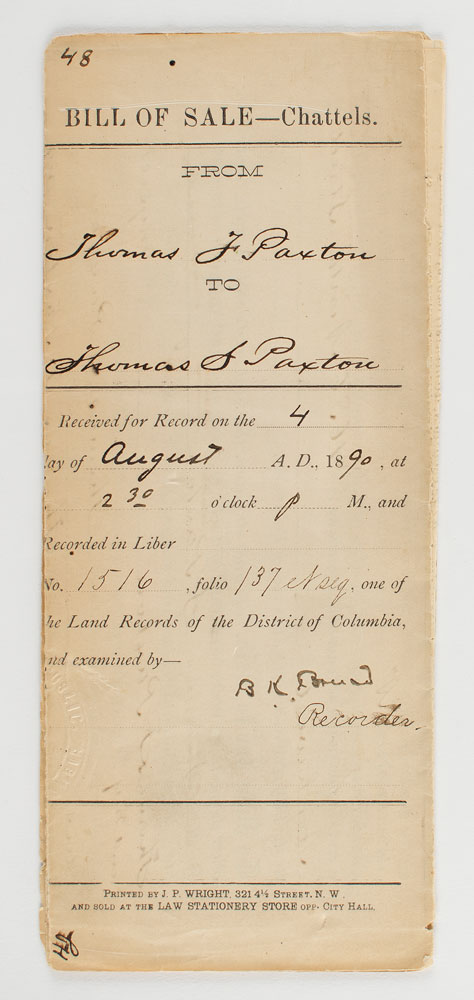 48
BILL OF SALE—Chattels.
FROM
Thomas F Paxton
TO
Thomas S Paxton
Received for Record on the 4
day of August A. D., 1890, at
2 30 o'clock P M., and
Recorded in Liber
No. 1516, folio 137 et seq, one of
the Land Records of the District of Columbia,
and examined by—
B K
Recorder.
PRINTED BY J. P. WRIGHT, 321 4½ STREET, N. W.
AND SOLD AT THE LAW STATIONERY STORE OPP. CITY HALL.
48